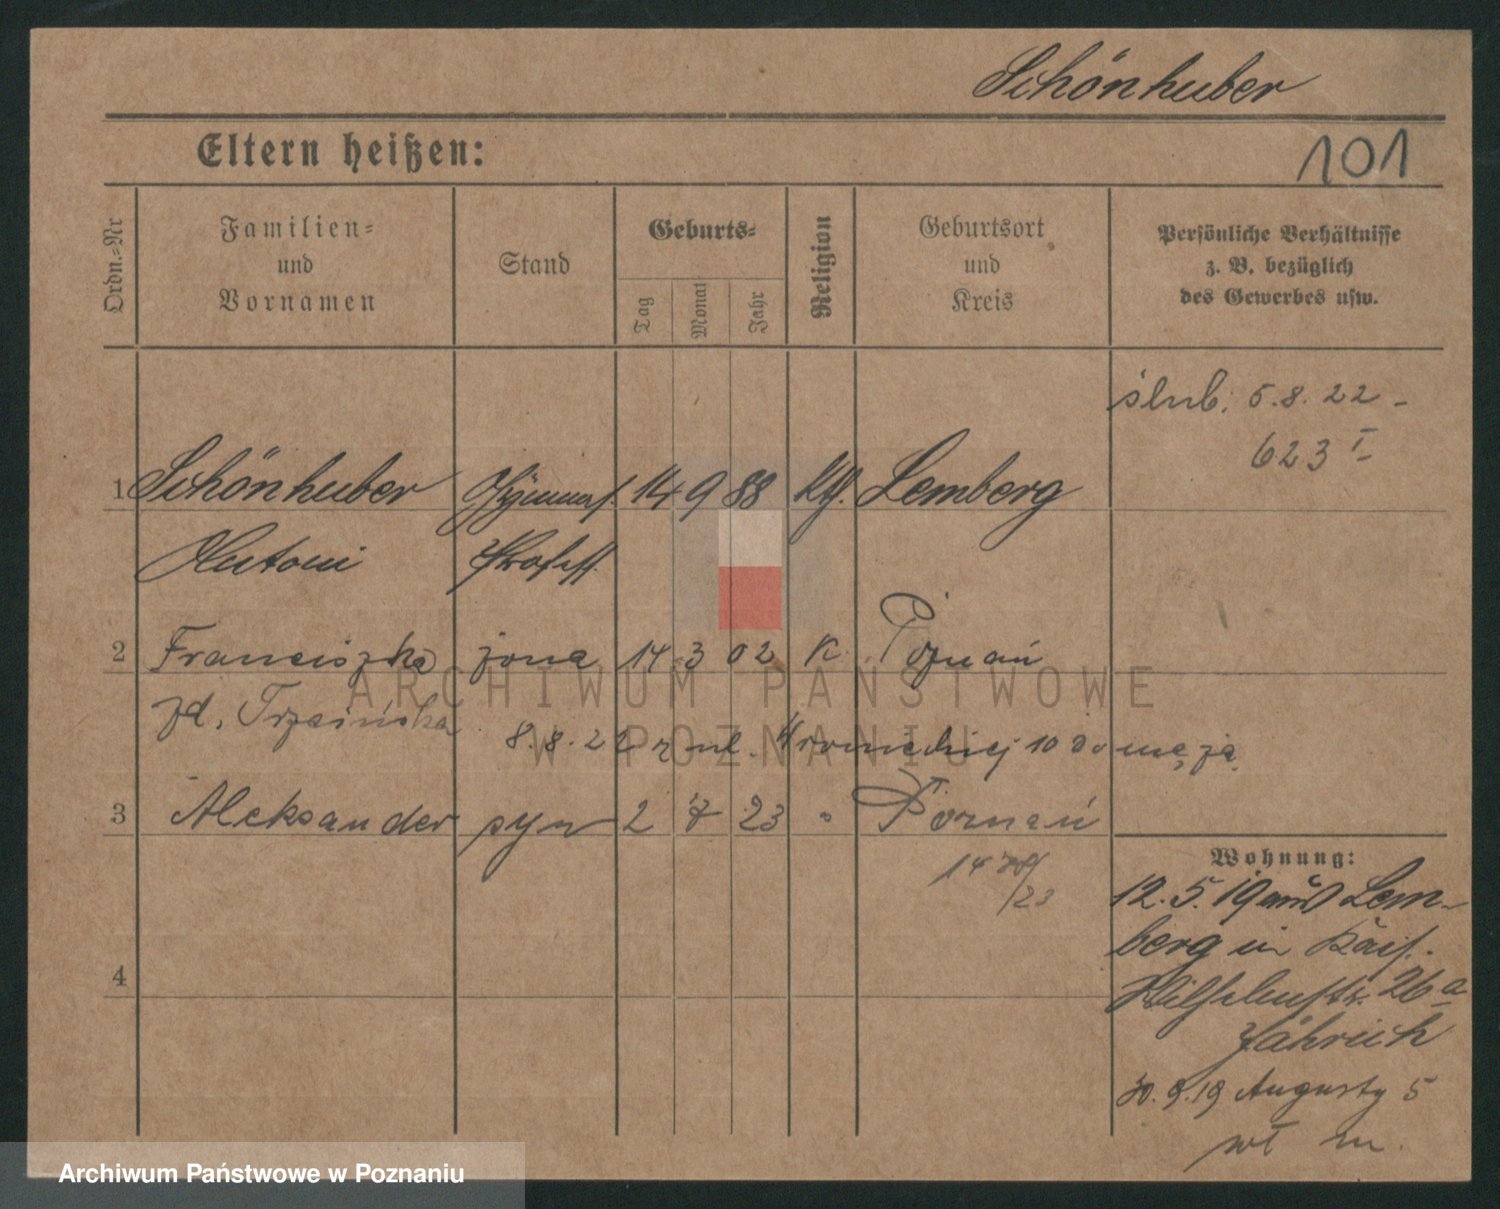 Schönhuber
Eltern heißen:
101
Ordn.-Nr
Familien- und Vornamen
Stand
Geburts-
Tag
Monat
Jahr
Religion
Geburtsort und Kreis
Persönliche Verhältnisse
z. B. bezüglich
des Gewerbes usw.
ślub. 5.8.22 -
623 I
1 Schönhuber Gymnas. 14 9 88 Kth. Lemberg
Antoni Profess.
2 Franciszka żona 14 3 02 K. Poznań
zd. Trzcińska
8.8.22 z ul. 10 do męża
3 Aleksander syn 2 7 23 " Poznań
14
/23
4
Wohnung:
12.5.19 aus Lem-
berg in Kais.
Wilhelmstr. 26a
Jähnich
30.9.19 Augusty 5
wł m.
ARCHIWUM PAŃSTWOWE
W POZNANIU
Archiwum Państwowe w Poznaniu